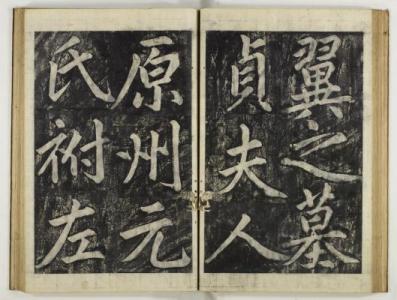 翼之墓
貞夫人
原州元
氏祔左